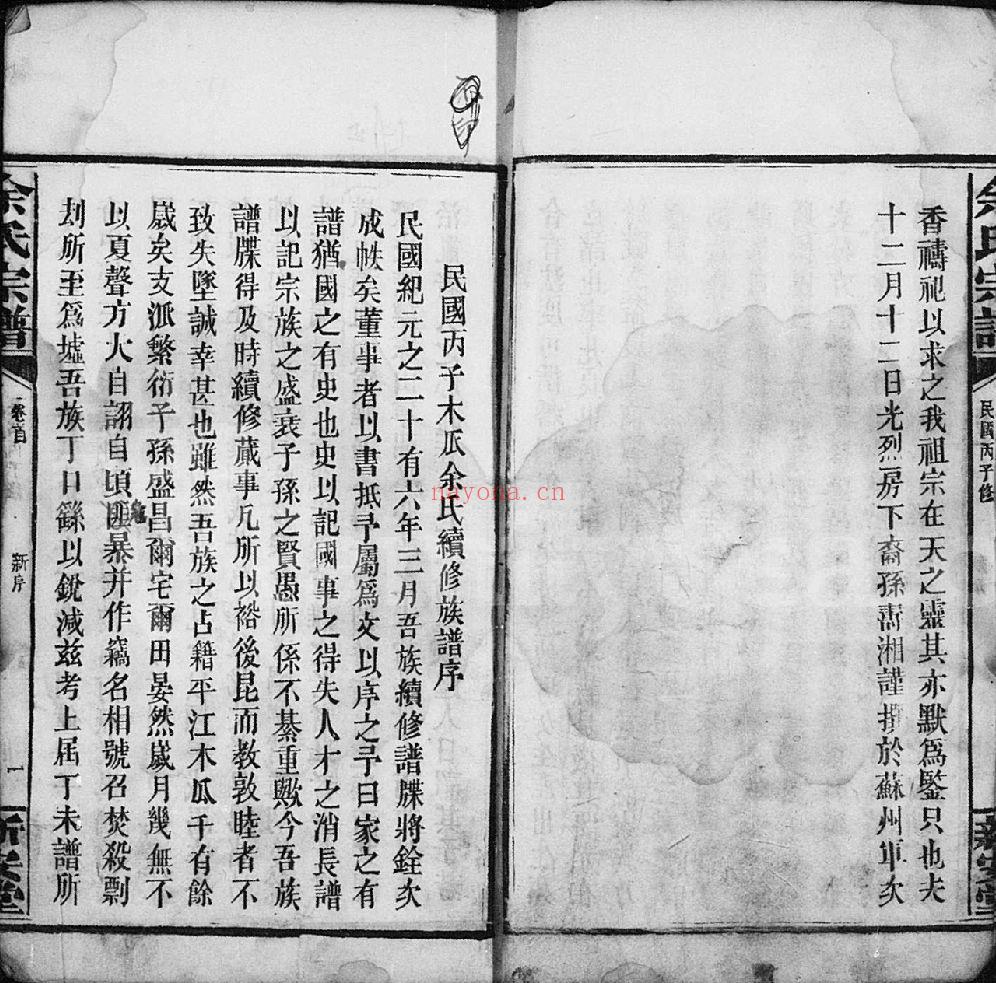 余氏宗譜
民國丙子修
新安堂
香禱祀以求之我祖宗在天之靈其亦默為鑒只也夫
十二月十二日光烈房下裔孫燾湘謹撰於蘇州軍次
民國丙子木瓜余氏續修族譜序
民國紀元之二十有六年三月吾族續修譜牒將銓次
成帙矣董事者以書抵予屬為文以序之予曰家之有
譜猶國之有史也史以記國事之得失人才之消長譜
以記宗族之盛衰子孫之賢愚所係不綦重歟今吾族
譜牒得及時續修蕆事凡所以裕後昆而教敦睦者不
致失墜誠幸甚也雖然吾族之占籍平江木瓜千有餘
歲矣支派繁衍子孫盛昌爾宅爾田晏然歲月幾無不
以夏聲方大自詡自頃匪暴并作竊名相號召焚殺剽
刦所至為墟吾族丁口繇以銳減茲考上屆丁未譜所
余氏宗譜
卷首
新序
一
新安堂
nuyona.cn